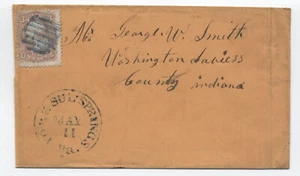 Mr George W. Smith
Washington Daviess
County Indiana
YORK SUL. SPRINGS
MAY
11
Pa.